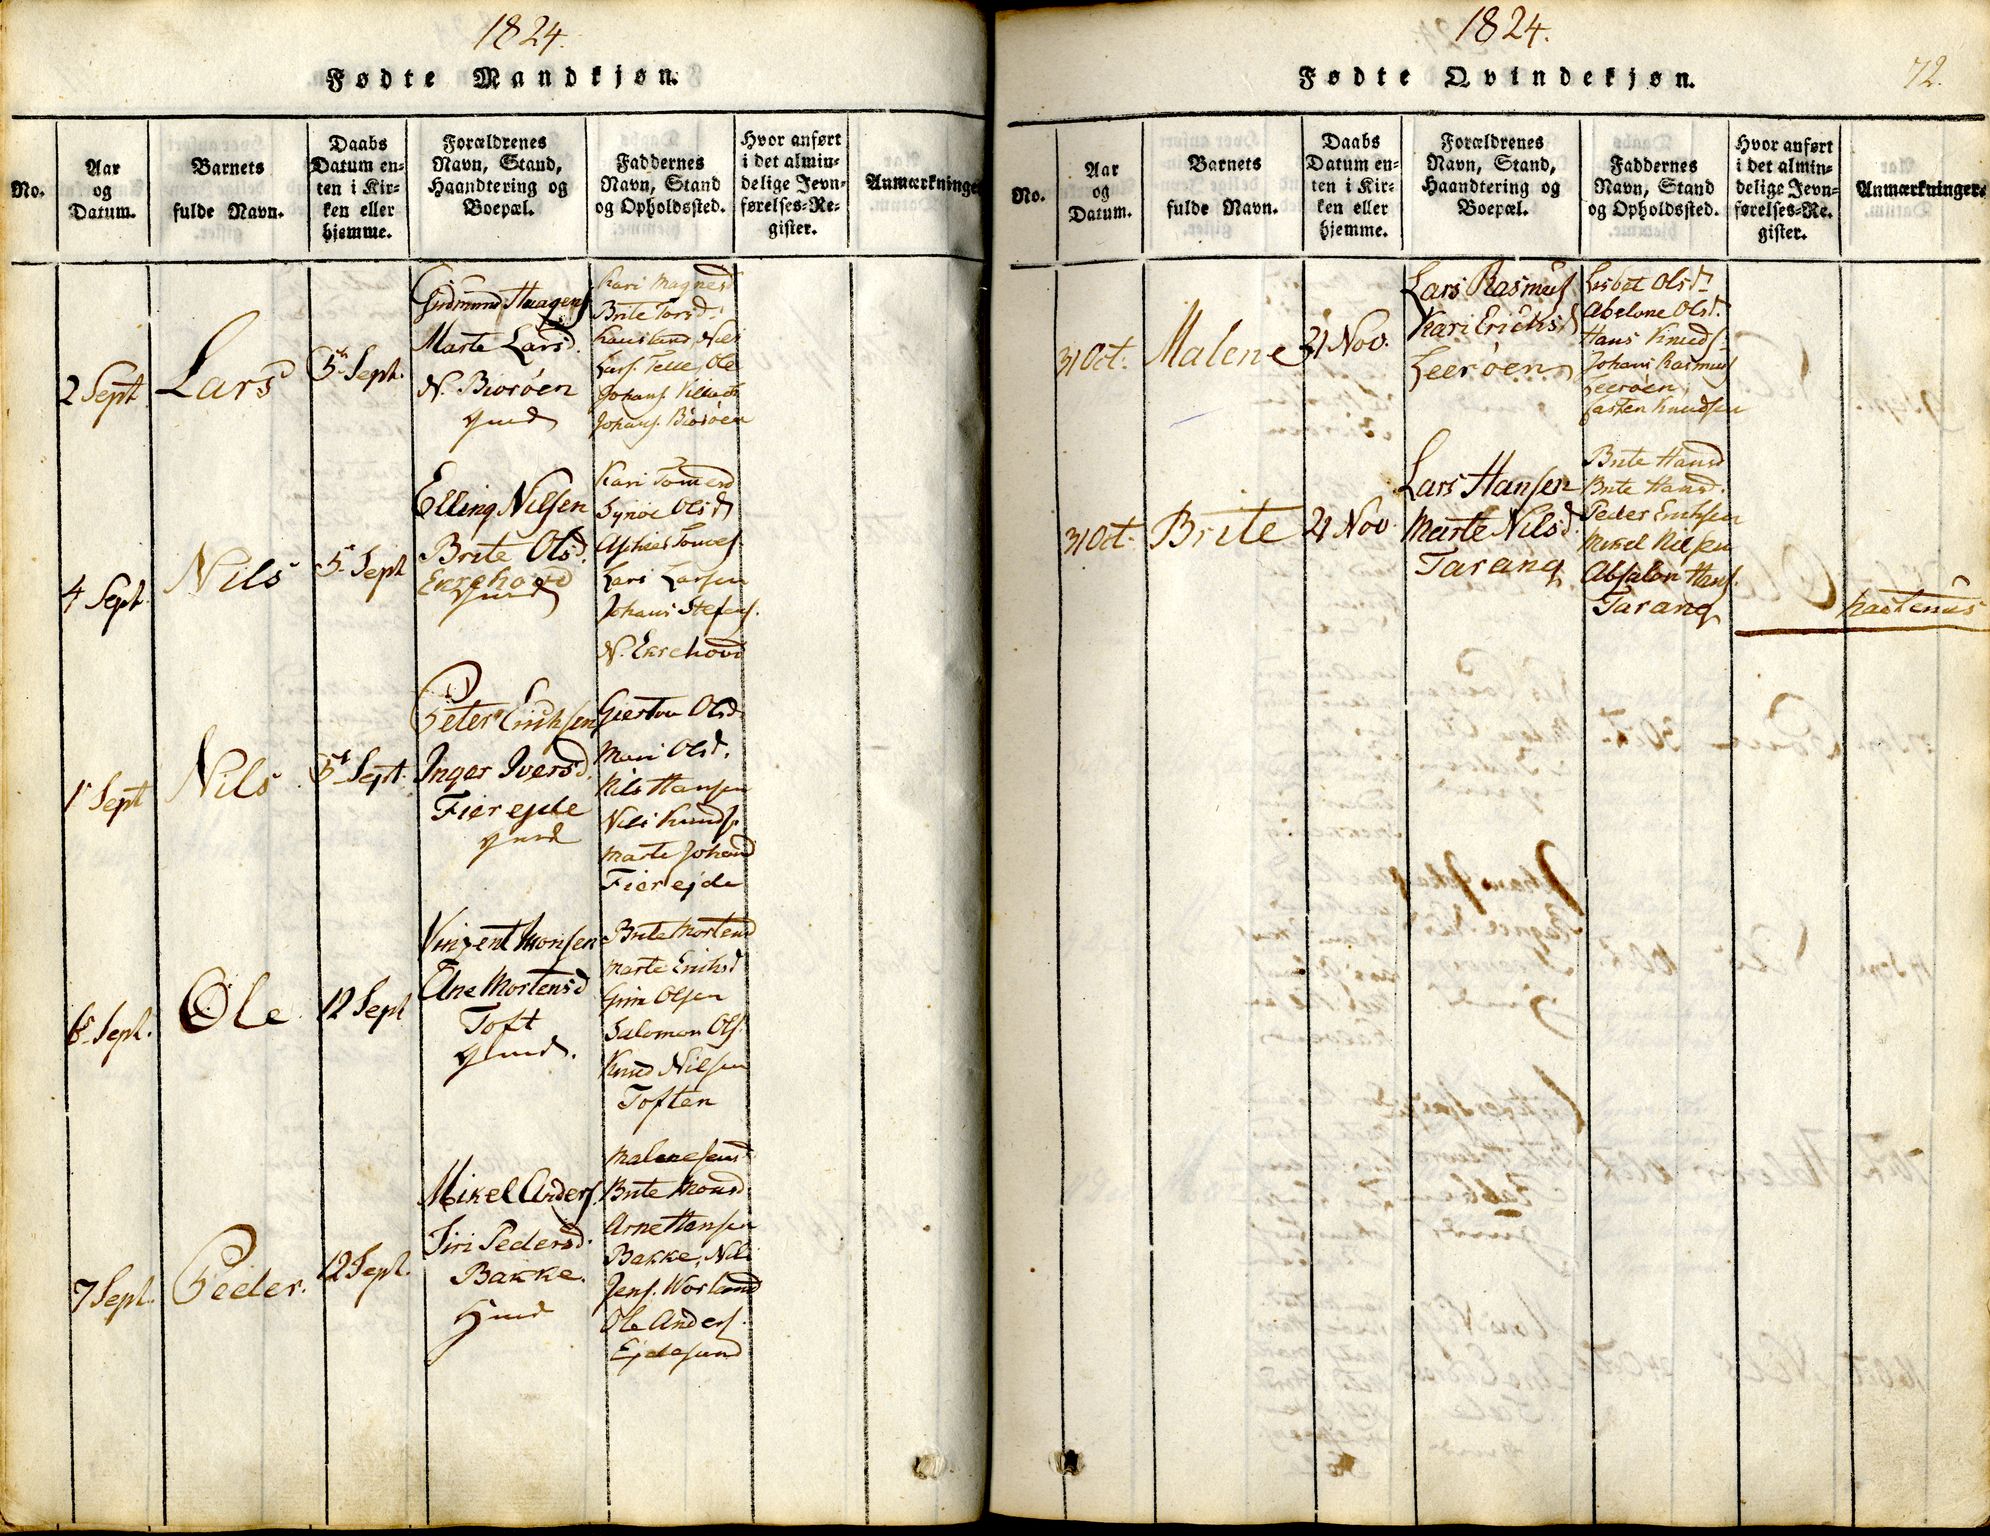 1824.
Fødte Mandkjøn.
No.
Aar
og
Datum.
Barnets
fulde Navn.
Daabs
Datum en-
ten i Kir-
ken eller
hjemme.
Forældrenes
Navn, Stand,
Haandtering og
Boepæl.
Faddernes
Navn, Stand
og Opholdssted.
Hvor anført
i det almin-
delige Jevn-
førelses-Re-
gister.
Anmærkninge
2 Sept
Lars
5 Sept.
Gudmund Haagens
Marte Larsd.
N. Biorøen
Kari Magnesd
Brite Torsd.
Nils
Lars. Telle, Ole
Johans.
Johans. Biorøen
4 Sept.
Nils
5 Sept
Elling Nilsen
Brite Olsd.
Ekrehovd
Kari Tomesd
Synøe Olsd
Tomes.
Lars Larsen
Johans Stefens.
N. Ekrehovd
1 Sept
Nils
5 Sept.
Peter Erichsen
Inger Iversd.
Fierejde
Giertru Olsd.
Mari Olsd.
Nils Hansen
Nils Knuds.
Marte Johansd
Fierejde
6 Sept.
Ole
12 Sept
Vinzent Monsen
Ane Mortensd
Toft
Brite Mortensd
Marte Eriksd
Grim Olsen
Salomon Ols.
Knud Nilsen
Toften
7 Sept.
Peder.
12 Sept.
Mikel Anders.
Siri Pedersd.
Bakke.
Malene Jensd.
Brite Monsd.
Arne Hansen
Bakke, Nils
Jens.
Ole Anders.
Ejdesund
1824.
72.
Fødte Qvindekjøn.
No.
Aar
og
Datum.
Barnets
fulde Navn.
Daabs
Datum en-
ten i Kir-
ken eller
hjemme.
Forældrenes
Navn, Stand,
Haandtering og
Boepæl.
Faddernes
Navn, Stand
og Opholdssted.
Hvor anført
i det almin-
delige Jevn-
førelses-Re-
gister.
Anmærkninger.
31 Oct.
Malene
Nov.
Lars Rasmus
Kari Erichsd
Leerøen
Lisbet Olsd.
Abelone Olsd.
Hans Knuds.
Johans Rasmus
Leerøen
Casten Knudsen
31 Oct.
Brite
21 Nov.
Lars Hansen
Marte Nilsd.
Tarang
Brite Hansd
Brite Hansd.
Peder Erichsen
Mikel Nilsen
Absalon Hans.
Tarang
hactenus